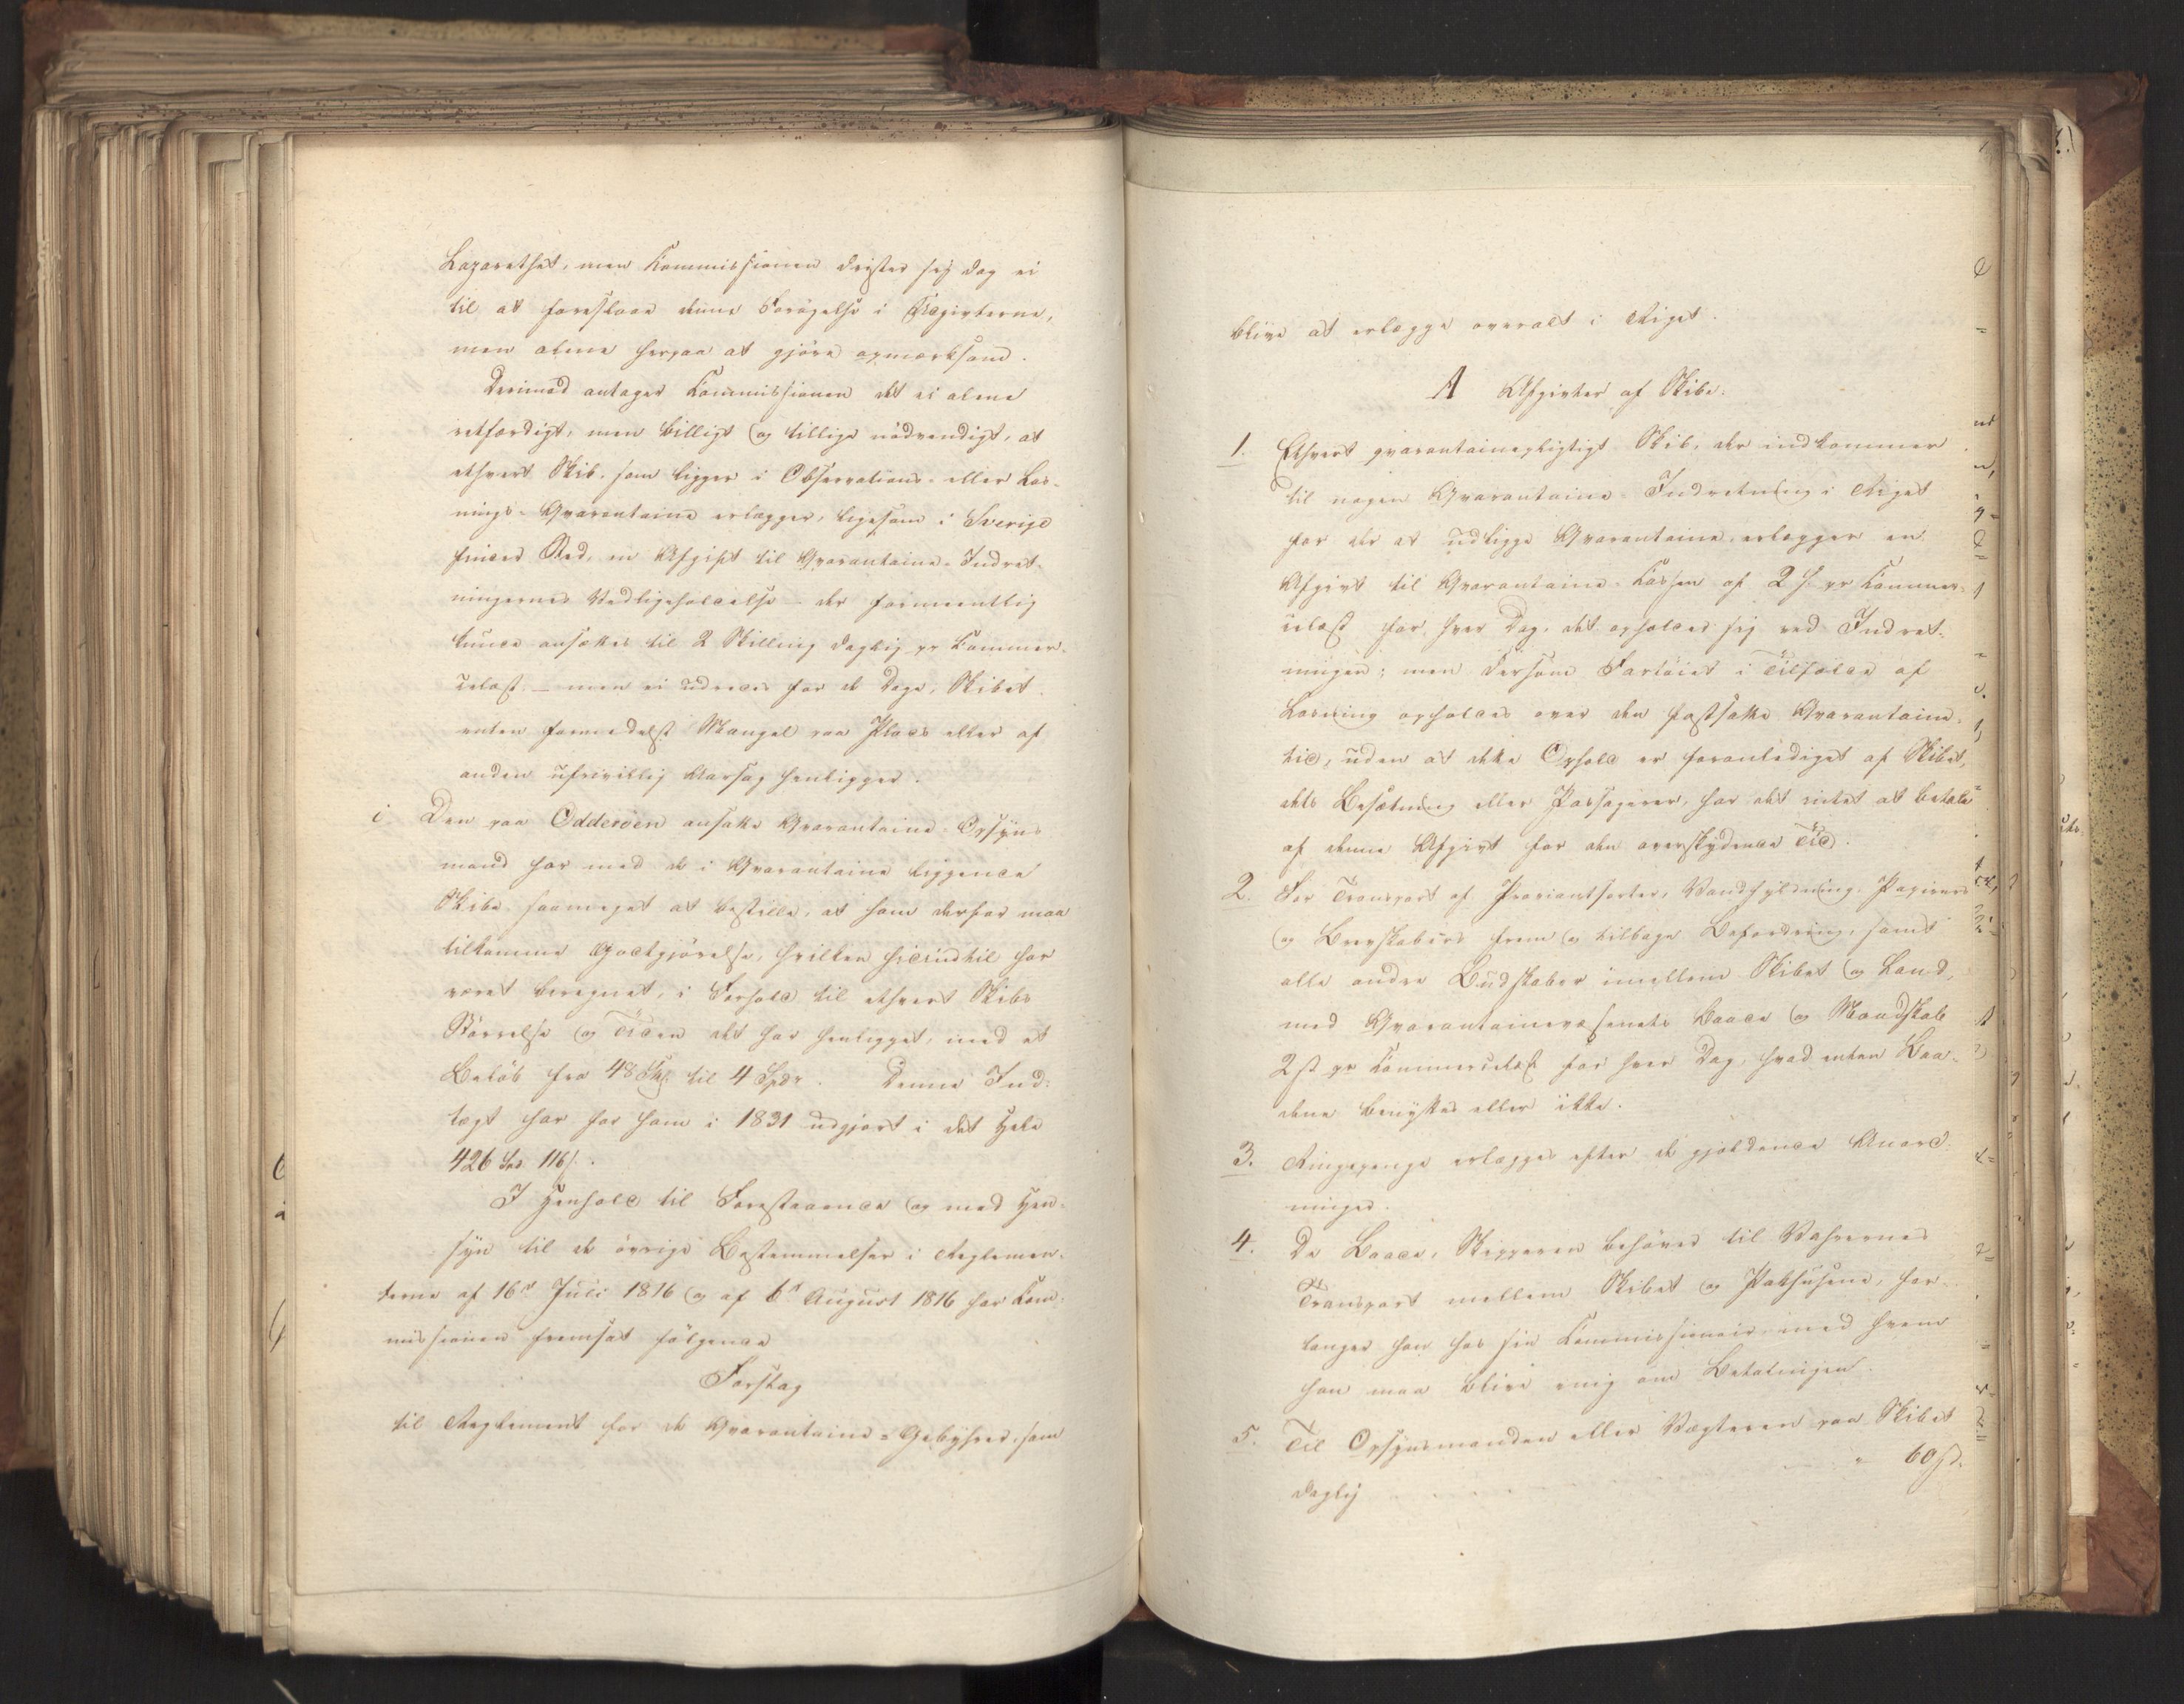 Lazarethet, men Kommissionen drister sig dog ei
til at foreslaae denne Forøgelse i Afgivterne,
men alene herpaa at gjøre opmærksom.
Derimod antager Kommissionen det ei alene
retfærdigt, men billigt og tillige nødvendigt, at
ethvert Skib, som ligger i Observations- eller Los-
nings-Qvarantaine erlægger, ligesom i Sverige
finder Sted, en Afgift til Qvarantaine-Indret-
ningernes Vedligeholdelse – der formeentlig
kunde ansættes til 2 Skilling daglig pr Kommer-
celæst – men ei udredes for de Dage, Skibet
enten formedelst Mangel paa Plads eller af
anden ufrivillig Aarsag henligger.
i Den paa Odderöen ansatte Qvarantaine-Opsyns-
mand har med de i Qvarantaine liggende
Skibe saameget at bestille, at ham derfor maa
tilkomme Godtgjørelse, hvilken hidindtil har
været beregnet, i Forhold til ethvert Skibs
Størrelse og Tiden det har henligget, med et
Beløb fra 48 Skl til 4 Spdr. Denne Ind-
tægt har for ham i 1831 udgjort i det Hele
426 Spd 116 s.
I Henhold til Forestaaende og med Hen-
syn til de øvrige Bestemmelser i Reglemen-
terne af 16de Juli 1816 og af 6te August 1816 har Kom-
missionen fremsat følgende
Forslag
til Reglement for de Qvarantaine-Gebyhrer, som
blive at erlægge overalt i Riget.
A Afgivter af Skibe.
1. Ethvert qvarantainepligtigt Skib, der indkommer
til nogen Qvarantaine-Indretning i Riget
for der at udligge Qvarantaine, erlægger en
Afgivt til Qvarantaine-Kassen af 2 s pr Kommer-
celæst for hver Dag, det opholder sig ved Indret-
ningen; men dersom Fartøiet i Tilfælde af
Losning opholdes over den fastsatte Qvarantaine-
tid, uden at dette Ophold er foranlediget af Skibet,
dets Besætning eller Passagerer, har det intet at betale
af denne Afgivt for den overskydende Tid.
2. For Transport af Proviantsorter, Vandfyldning, Papirers
og Brevskabers frem og tilbage Befordring, samt
alle andre Budskaber imellem Skibet og Land,
med Qvarantainevæsenets Baade og Mandskab
2 s pr Kommercelæst for hver Dag, hvad enten Baa-
dene benyttes eller ikke.
3. Ringepenge erlægges efter de gjældende Anord-
ninger.
4. De Baade, Skipperen behøver til Vahrernes
Transport mellem Skibet og Pakhusene, for-
langer han hos sin Kommissionair, med hvem
han maa blive enig om Betalningen.
5. Til Opsynsmanden eller Vægteren paa Skibet
daglig " 60 s.